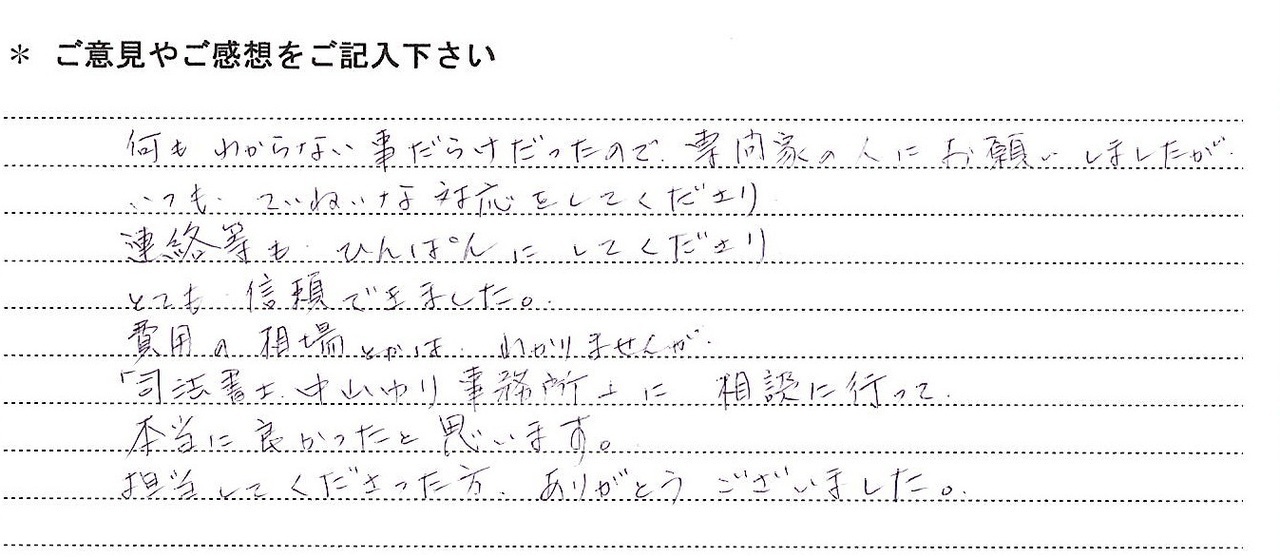 ＊ ご意見やご感想をご記入下さい
何もわからない事だらけだったので、専門家の人にお願いしましたが、
いつも、ていねいな対応をしてくださり
連絡等も、ひんぱんにしてくださり
とても信頼できました。
費用の相場とかは、わかりませんが、
「司法書士 中山ゆり事務所」に相談に行って、
本当に良かったと思います。
担当してくださった方、ありがとうございました。